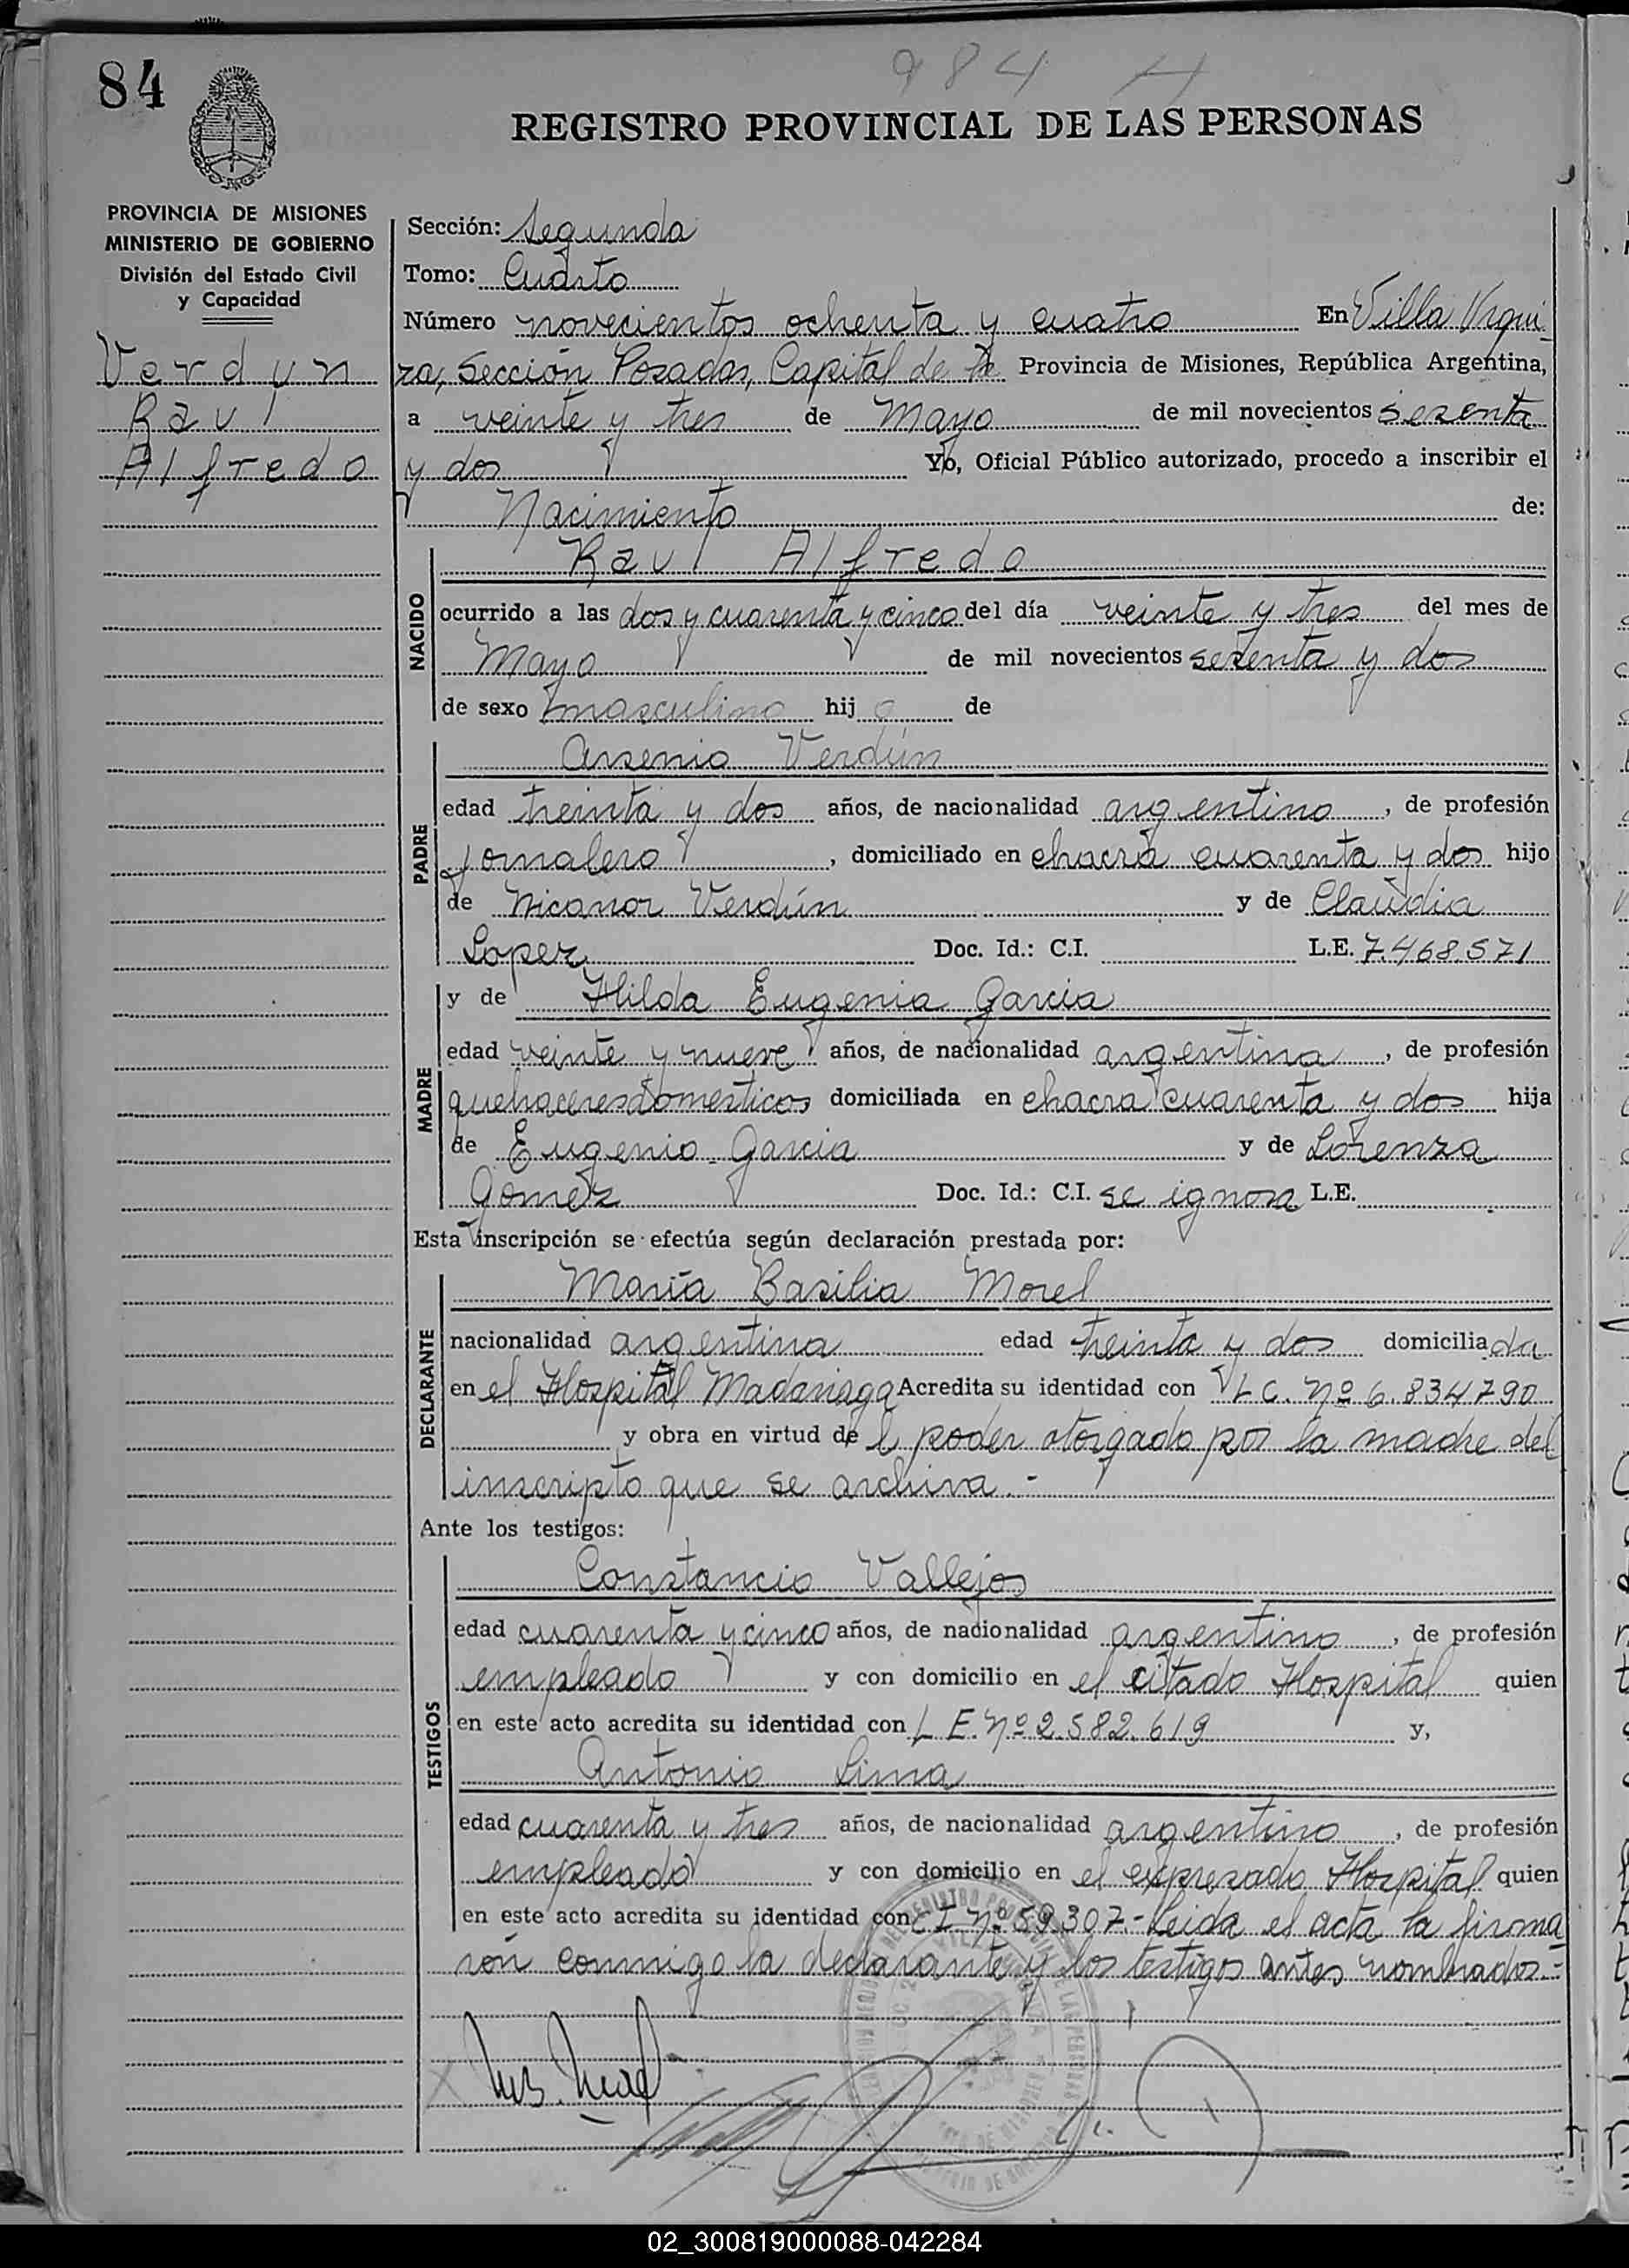 984
84
REGISTRO PROVINCIAL DE LAS PERSONAS
PROVINCIA DE MISIONES
MINISTERIO DE GOBIERNO
División del Estado Civil
y Capacidad
Verdun
Raul
Alfredo
Sección: Segunda
Tomo: Cuarto
Número novecientos ochenta y cuatro En Villa Urqui
za, Sección Posadas, Capital de la Provincia de Misiones, República Argentina,
a veinte y tres de Mayo de mil novecientos sesenta
y dos Yo, Oficial Público autorizado, procedo a inscribir el
Nacimiento de:
NACIDO
Raul Alfredo
ocurrido a las dos y cuarenta y cinco del día veinte y tres del mes de
Mayo de mil novecientos sesenta y dos
de sexo masculino hij o de
PADRE
Arsenio Verdún
edad treinta y dos años, de nacionalidad argentino, de profesión
jornalero, domiciliado en chacra cuarenta y dos hijo
de Nicanor Verdún y de Claudia
Lopez Doc. Id.: C.I. L.E. 7.468.571
MADRE
y de Hilda Eugenia Garcia
edad veinte y nueve años, de nacionalidad argentina, de profesión
quehaceres domesticos domiciliada en chacra cuarenta y dos hija
de Eugenio Garcia y de Lorenza
Gomez Doc. Id.: C.I. se ignora L.E.
Esta inscripción se efectúa según declaración prestada por:
DECLARANTE
María Basilia Morel
nacionalidad argentina edad treinta y dos domicilia da
en el Hospital Madariaga Acredita su identidad con L C. Nº 6.834790
y obra en virtud de l poder otorgado por la madre del
inscripto que se archiva.-
Ante los testigos:
TESTIGOS
Constancio Vallejos
edad cuarenta y cinco años, de nacionalidad argentino, de profesión
empleado y con domicilio en el citado Hospital quien
en este acto acredita su identidad con L E. Nº 2.582.619 y,
Antonio Lima
edad cuarenta y tres años, de nacionalidad argentino, de profesión
empleado y con domicilio en el expresado Hospital quien
en este acto acredita su identidad con C I Nº 59.307.- Leida el acta la firma
rón conmigo la declarante y los testigos antes nombrados.-
02_300819000088-042284